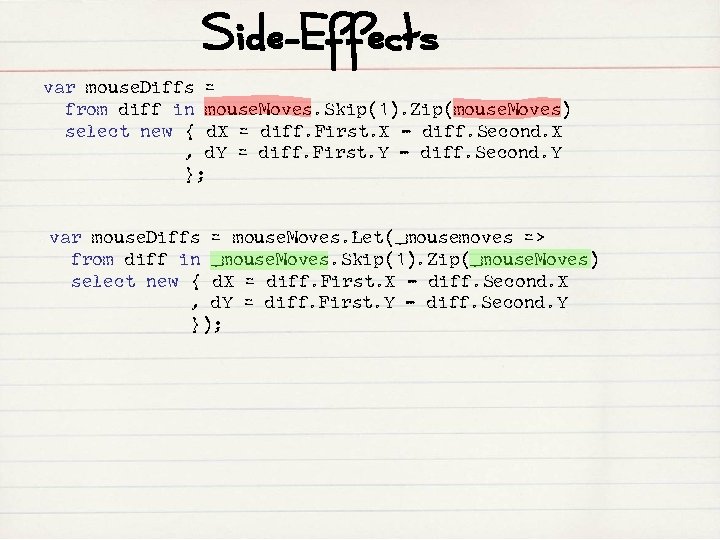 Side-Effects
var mouse.Diffs =
from diff in mouse.Moves.Skip(1).Zip(mouse.Moves)
select new { d.X = diff.First.X - diff.Second.X
, d.Y = diff.First.Y - diff.Second.Y
};
var mouse.Diffs = mouse.Moves.Let(_mousemoves =>
from diff in _mouse.Moves.Skip(1).Zip(_mouse.Moves)
select new { d.X = diff.First.X - diff.Second.X
, d.Y = diff.First.Y - diff.Second.Y
});